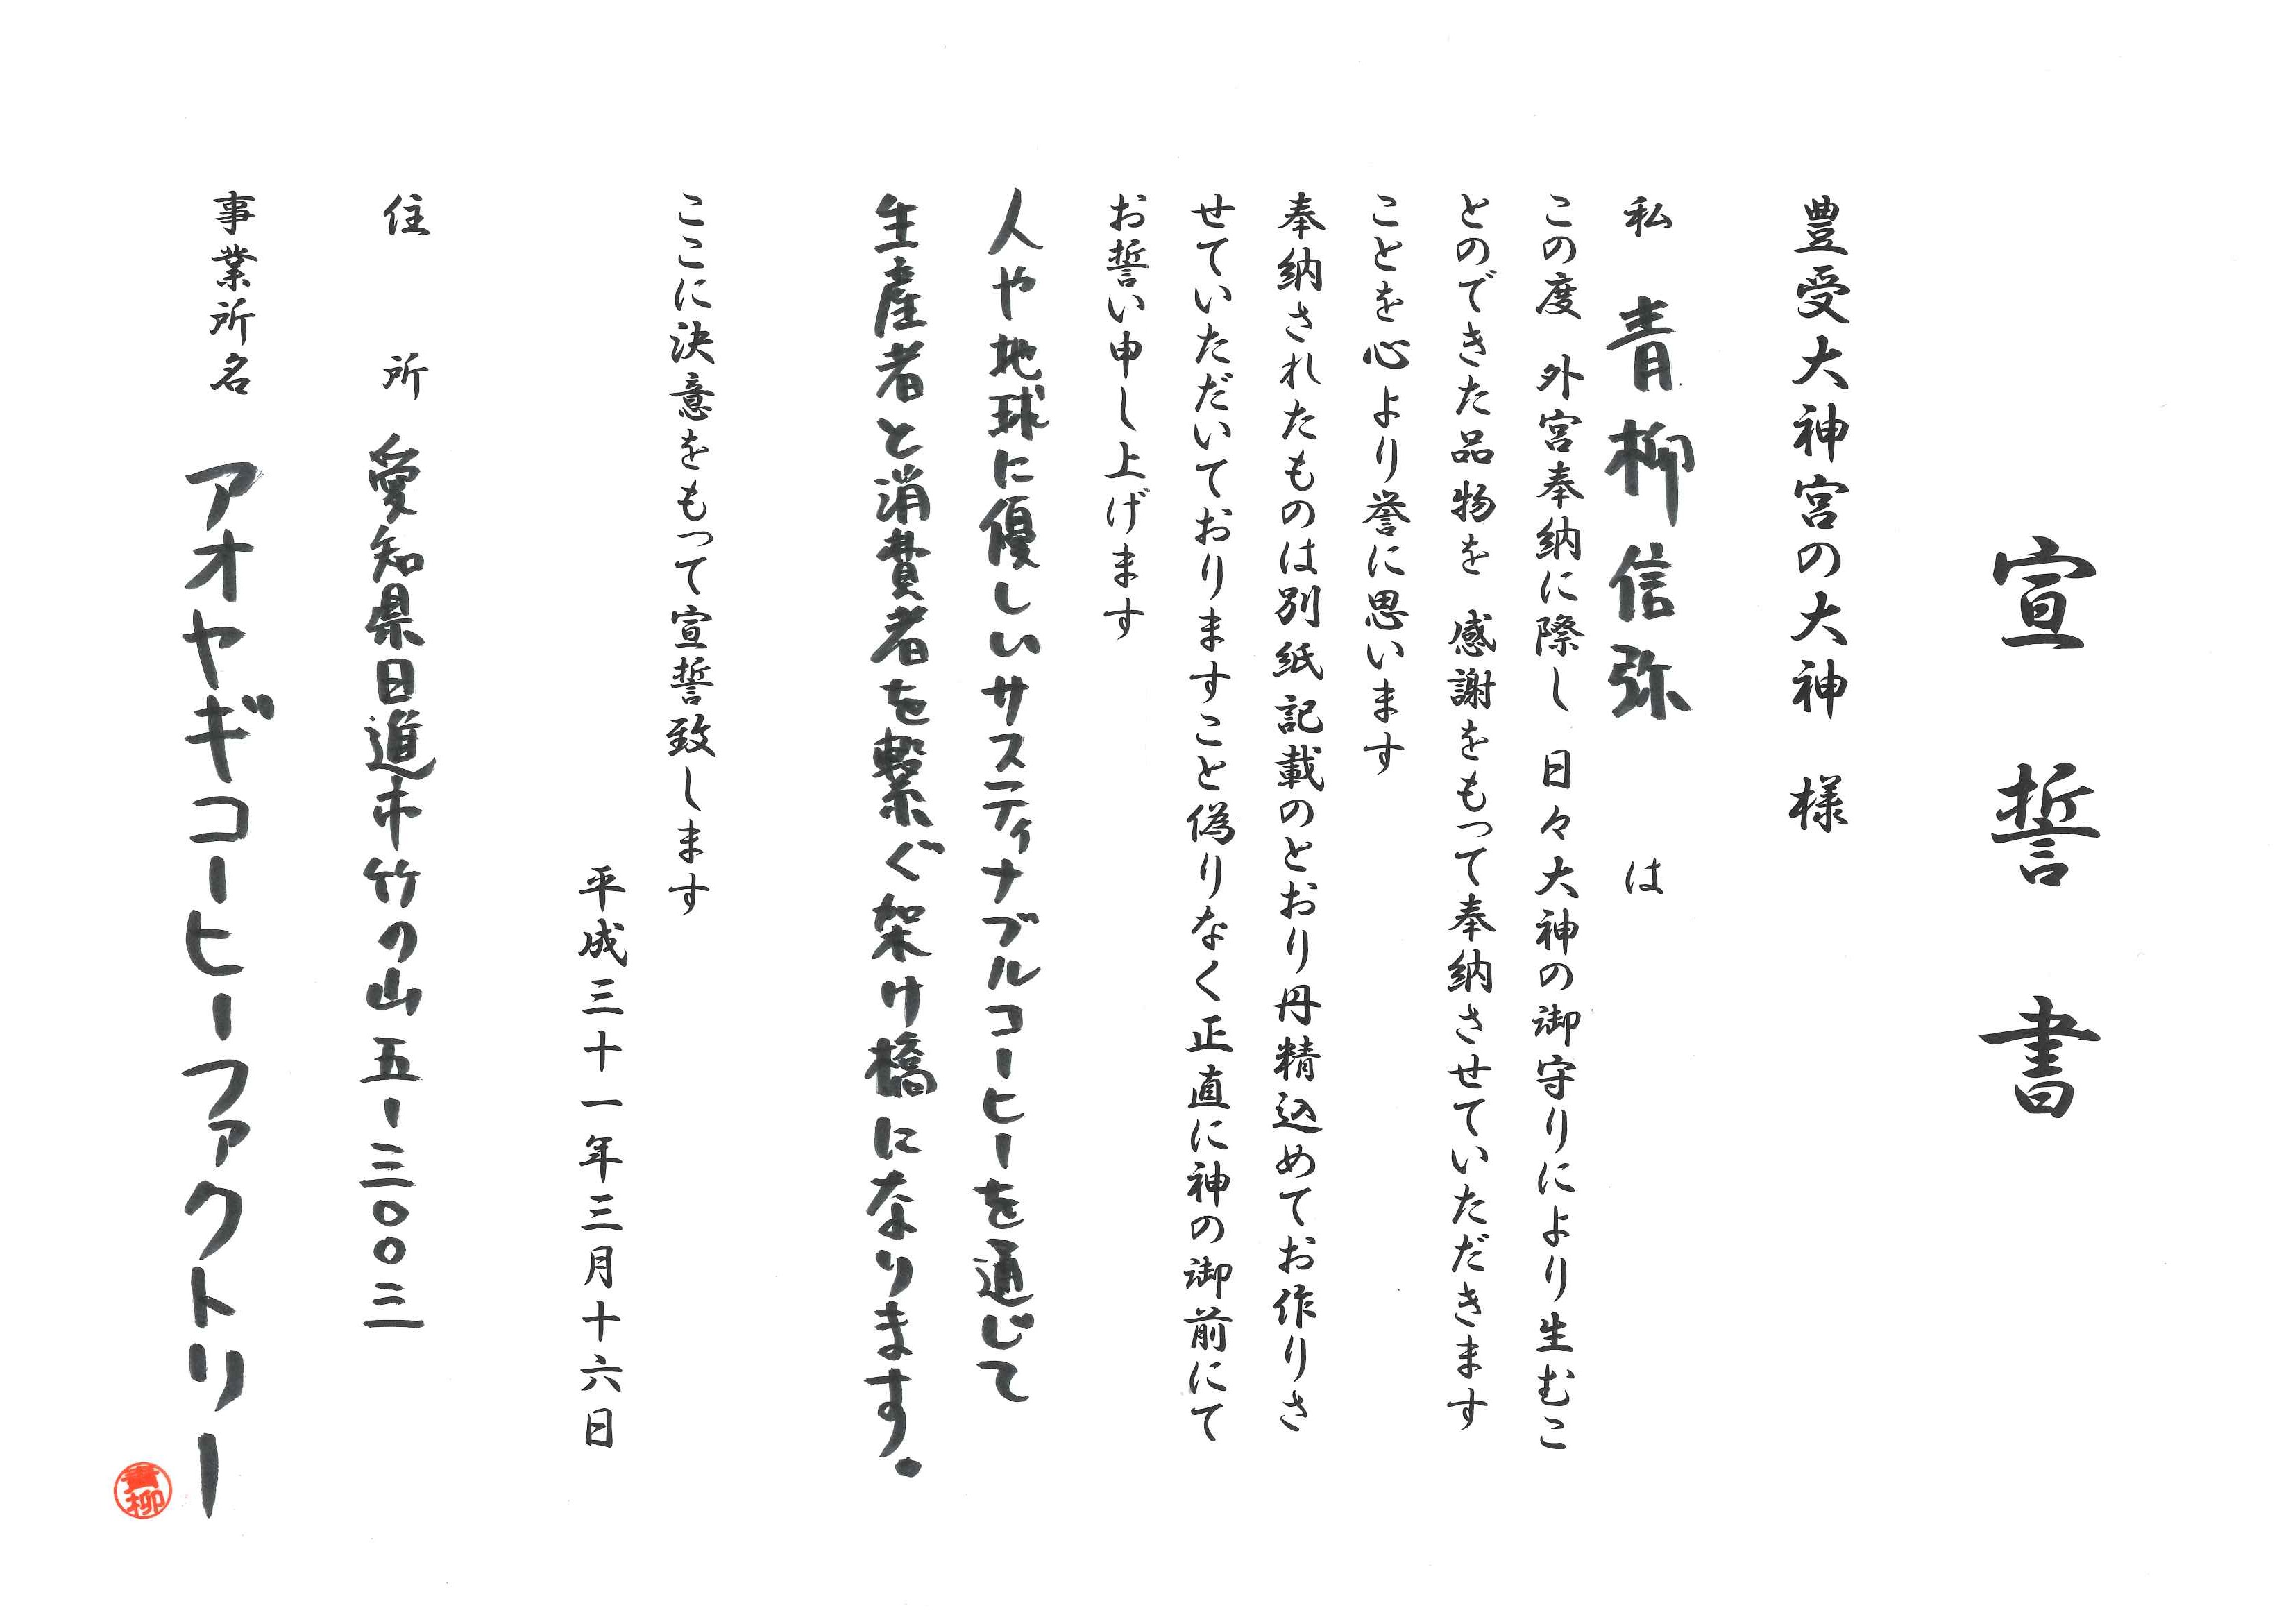 宣誓書
豊受大神宮の大神 様
私 青柳信弥 は
この度 外宮奉納に際し 日々大神の御守りにより生むこ
とのできた品物を 感謝をもって奉納させていただきます
ことを心より誉に思います
奉納されたものは別紙記載のとおり丹精込めてお作りさ
せていただいておりますこと偽りなく正直に神の御前にて
お誓い申し上げます
人や地球に優しいサスティナブルコーヒーを通じて
生産者と消費者を繋ぐ架け橋になります.
ここに決意をもって宣誓致します
平成三十一年三月十六日
住 所 愛知県日進市竹の山五ー三〇〇三
事業所名 アオヤギコーヒーファクトリー
青柳